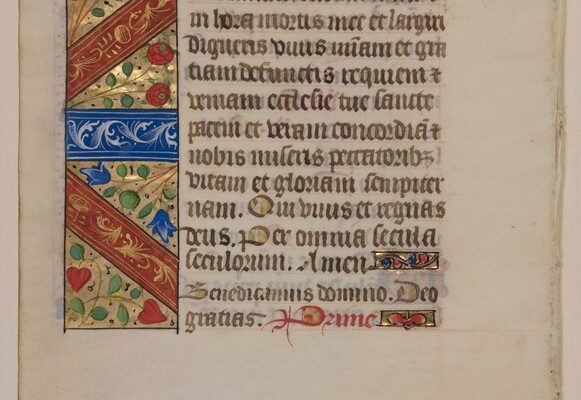 in hora mortis mee et largiri
digneris vivis misam et gra
tiam defunctis requiem ⁊
veniam ecclesie tue sancte
pacem et veram concordiā ⁊
nobis miseris peccatoribꝫ
vitam et gloriam sempiter
nam. Qui vivis et regnas
deus. Per omnia secula
seculorum. Amen
Benedicamus domino. Deo
gratias. Prime